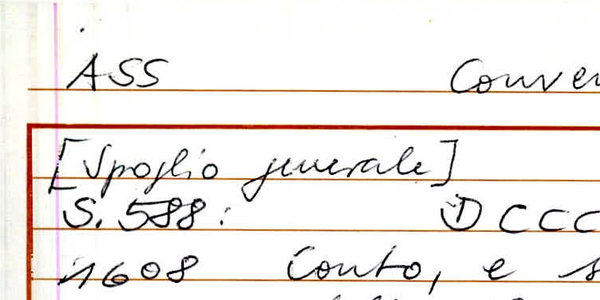 ASS Conven
[Spoglio generale]
S. 588: D CCCC
1608 Conto, e s